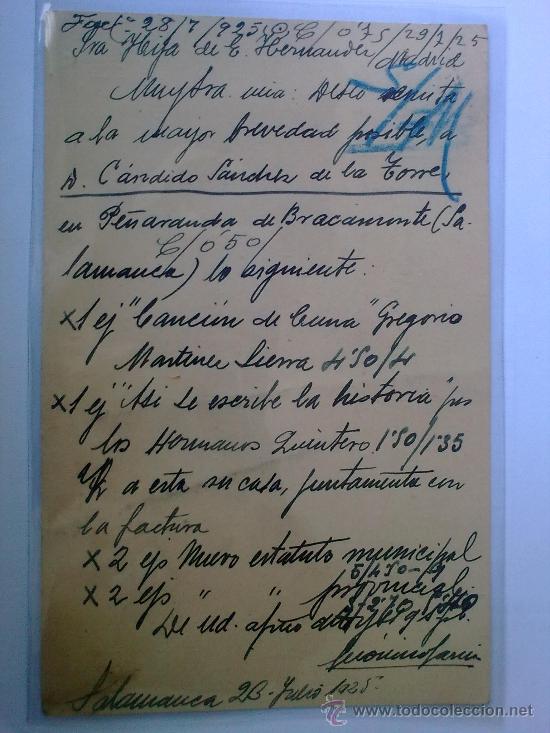 Fact 28/7/925 C/0'75/29/7/25
Sra Hija de E. Hernandez Madrid
Muy Sra. mia: Deseo remita
a la mayor brevedad posible, a
D. Cándido Sánchez de la Torre,
en Peñaranda de Bracamonte (Sa-
C/0'50/
lamanca) lo siguiente:
x 1 ej "Canción de Cuna" Gregorio
Martinez Sierra 4'50/4
x 1 ej "Asi se escribe la historia" por
los Hermanos Quintero 1'50/1'35
y a esta su casa, juntamente con
la factura
x 2 ejs Nuevo estatuto municipal
5/4'50-9
x 2 ejs " " provincial
De Ud. afmo
Salamanca 28-Julio 1925-
© todocoleccion.net
http://www.todocoleccion.net